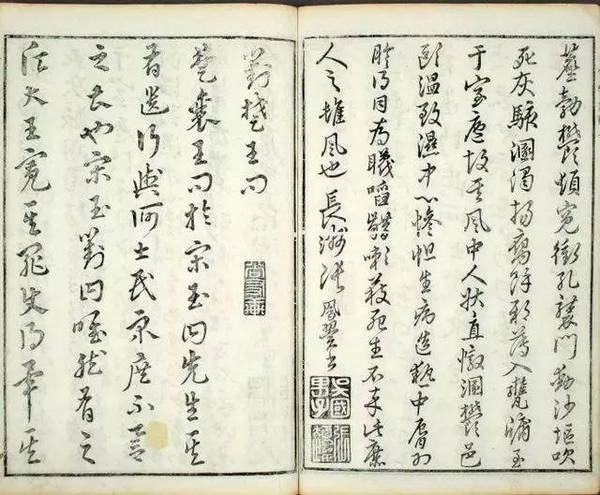 塵勃鬱煩冤衝孔襲門動沙堁吹
死灰駭溷濁揚腐餘邪薄入甕牖至
于室廬故其風中人狀直憞溷鬱邑
毆溫致濕中心慘怛生病造熱中脣為
胗得目為齰嗽獲死生不卒此庶
人之雌風也 長洲張鳳翼書
對楚王問
楚襄王問於宋玉曰先生其
有遺行與何士民衆庶不譽
之甚也宋玉對曰唯然有之
願大王寬其罪使得畢其